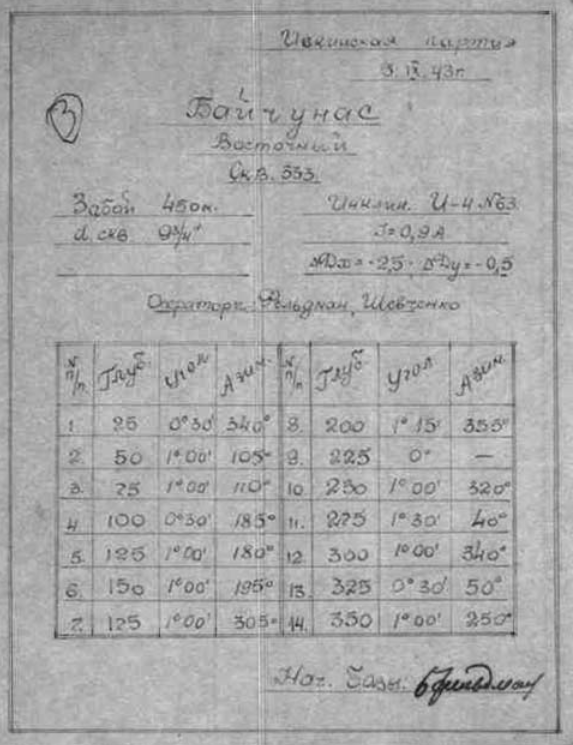 партия
3.IX.43г.
3
Байчунас
Восточный
Скв. 333.
Забой 450м.
Инклин. И-4 №63
d. скв. 9¾"
J=0,9А
Дх=-2,5 Ду=-0,5
Оператор: Фельдман, Шевченко
№ п/п. Глуб. Угол Азим. № п/п Глуб. Угол Азим.
1. 25 0°30' 340° 8. 200 1°15' 355°
2. 50 1°00' 105° 9. 225 0° —
3. 75 1°00' 110° 10 250 1°00' 320°
4 100 0°30' 185° 11. 275 1°30' 40°
5. 125 1°00' 180° 12. 300 1°00' 340°
6. 150 1°00' 195° 13. 325 0°30' 50°
7. 125 1°00' 305° 14. 350 1°00' 250°
Нач. Базы: